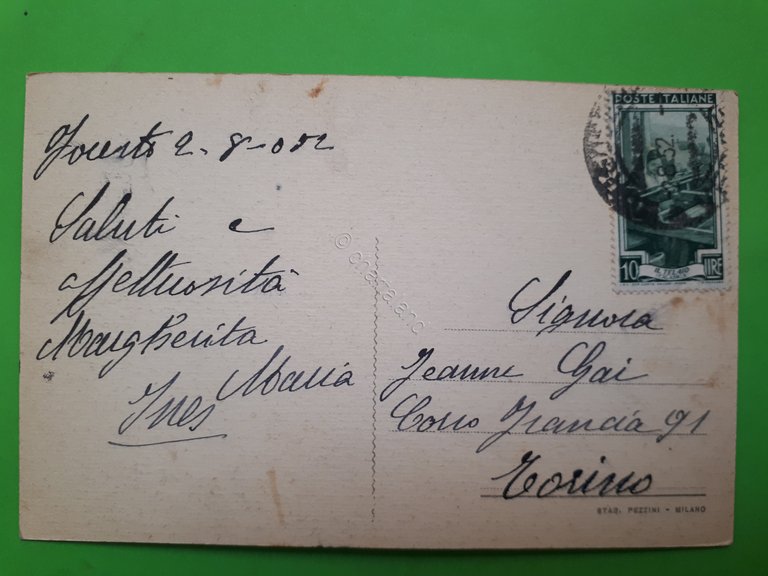 2-8-
Saluti e
Affettuosità
Margherita
Maria
Ines
POSTE ITALIANE
52
10 IL TELAIO LIRE
Signora
Jeanne Gai
Corso Francia 91
Torino
STAB. PEZZINI - MILANO
© chiara arc